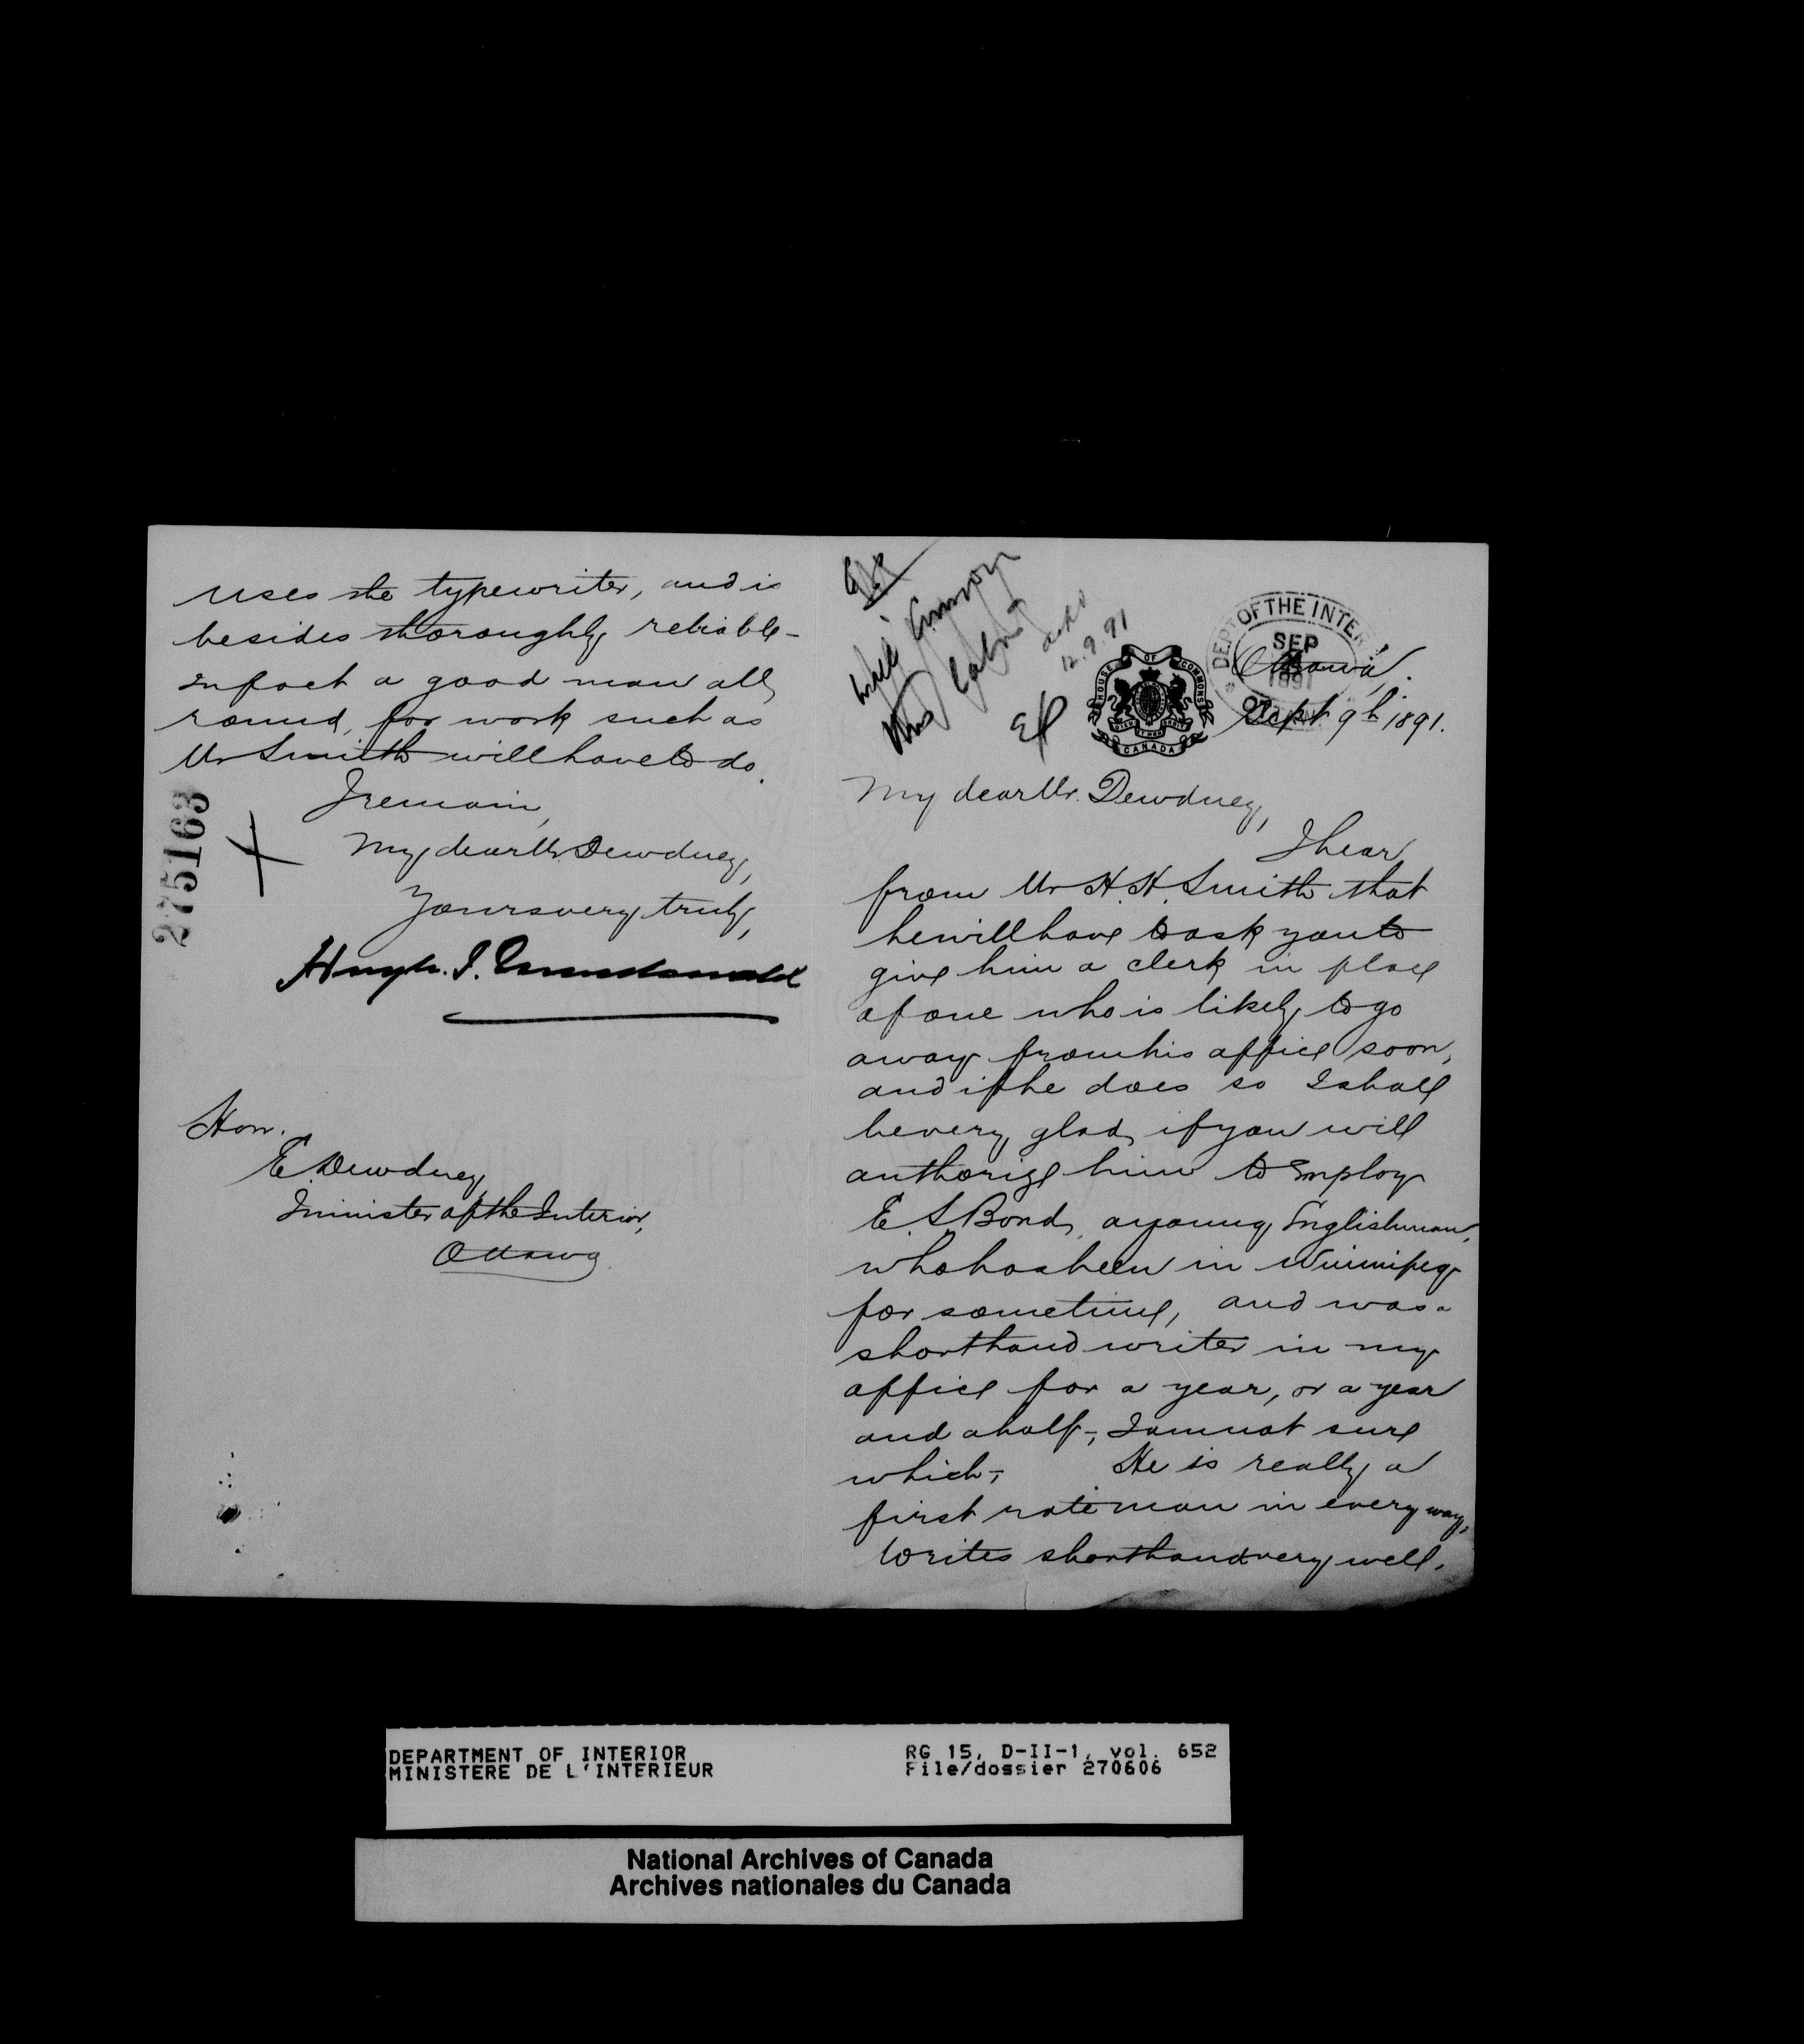 DEPT OF THE INTER
SEP
1891
HOUSE OF COMMONS
CANADA
ackd
12.9.91
Ottawa,
Sept 9th 1891.
My dear Mr. Dewdney,
I hear
from Mr H. H. Smith that
he will have to ask you to
give him a clerk in place
of one who is likely to go
away from his office soon,
and if he does so I shall
be very glad if you will
authorize him to employ
E. S. Bond, a young Englishman,
who has been in Winnipeg
for sometime, and was a
shorthand writer in my
office for a year, or a year
and a half -, I am not sure
which -, He is really a
first rate man in every way,
Writes shorthand very well,
uses the typewriter, and is
besides thoroughly reliable -
In fact a good man all
round, for work such as
Mr Smith will have to do.
I remain,
My dear Mr. Dewdney,
Yours very truly,
Hugh. J. Macdonald
Hon.
E. Dewdney,
Minister of the Interior,
Ottawa
275163
DEPARTMENT OF INTERIOR
MINISTERE DE L'INTERIEUR
RG 15, D-II-1, vol. 652
File/dossier 270606
National Archives of Canada
Archives nationales du Canada